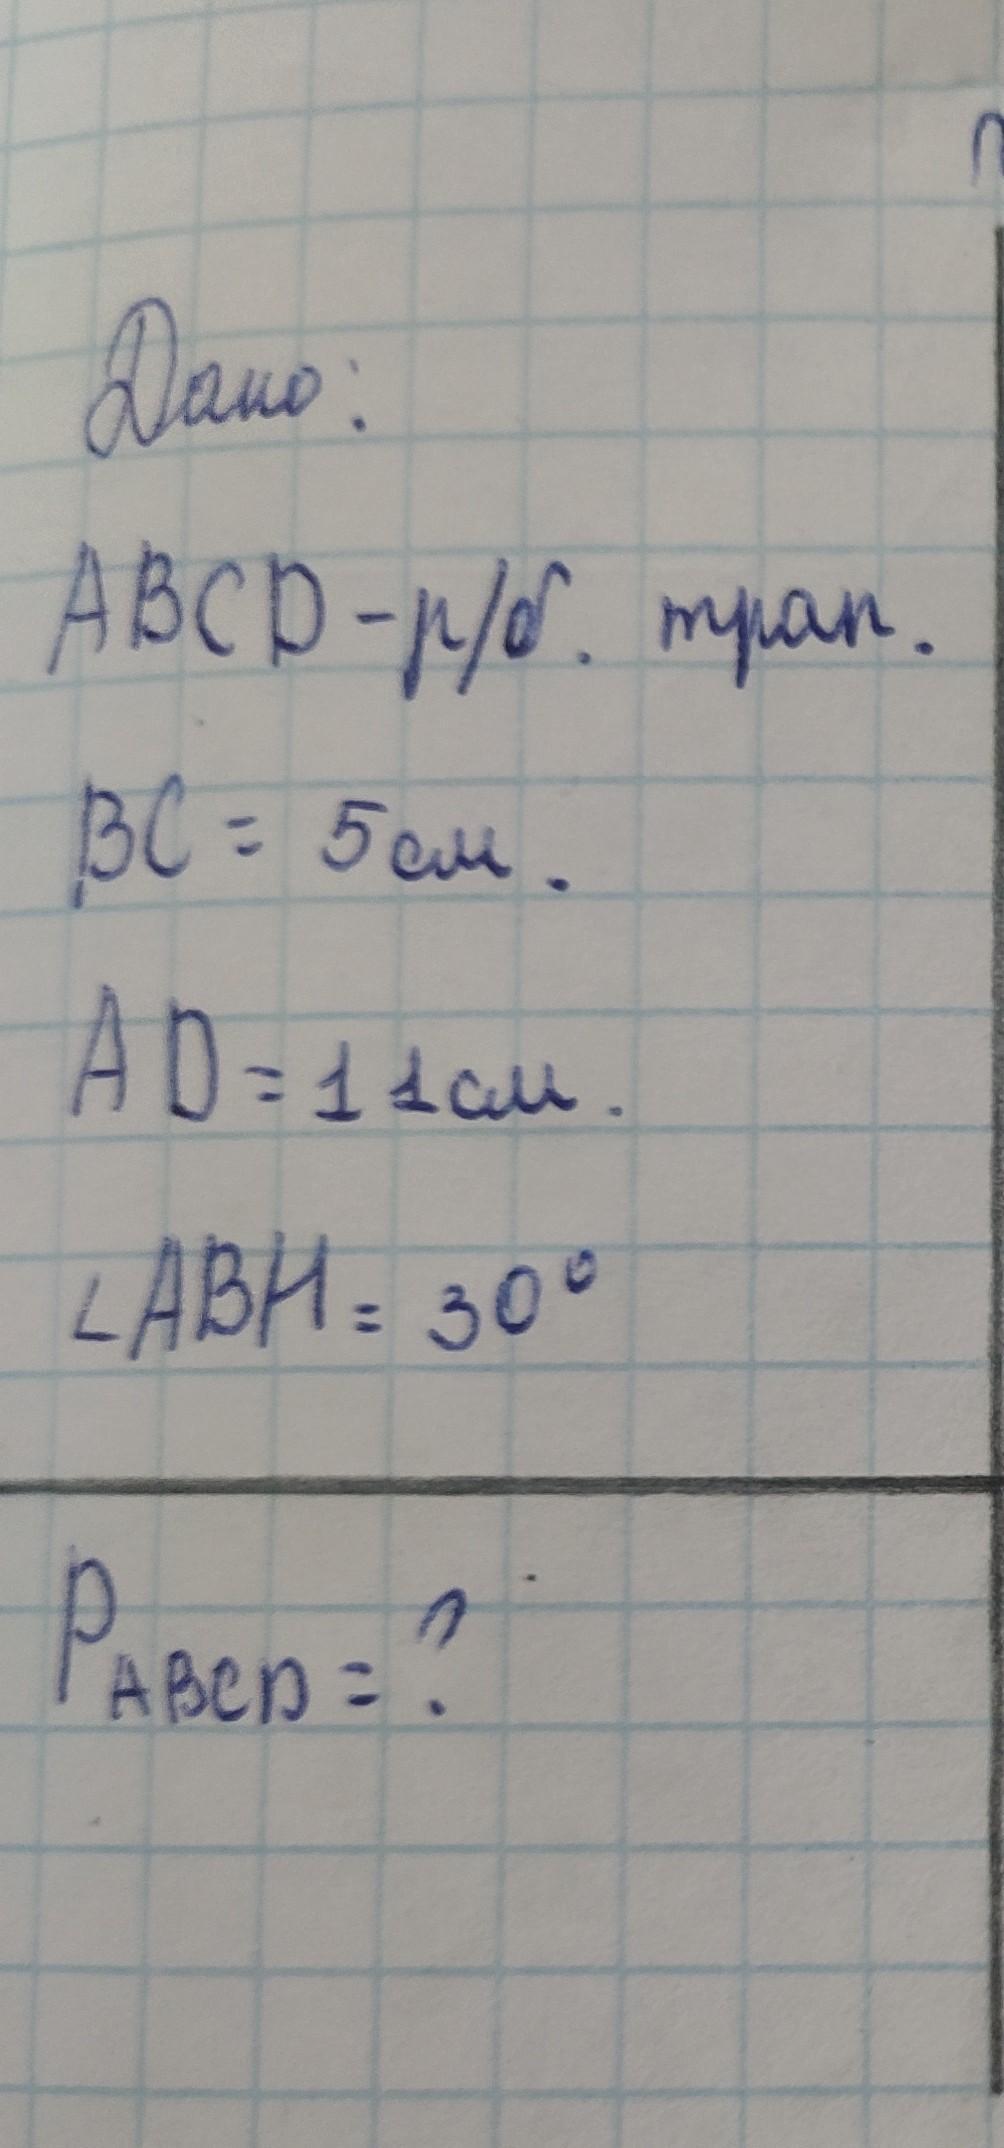 Дано:
ABCD - р/б. трап.
BC = 5см.
AD = 11см.
∠ABH = 30°
P ABCD = ?